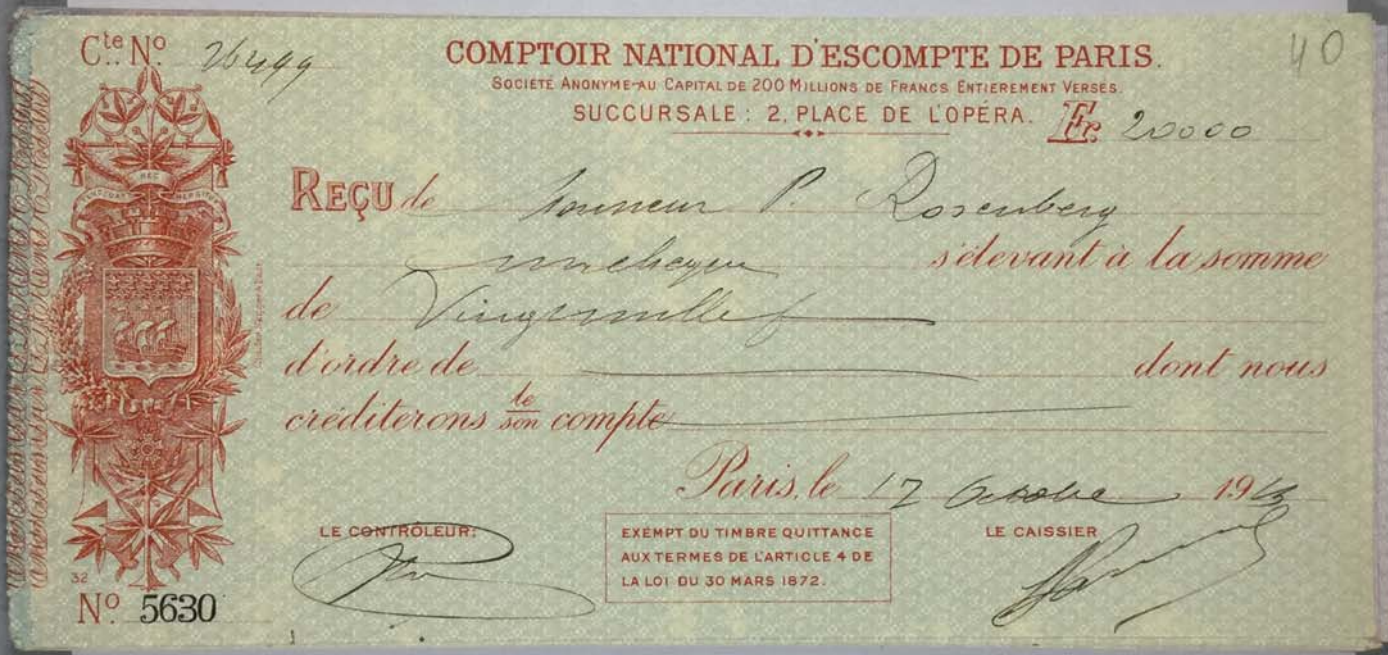 Cte No 26499
COMPTOIR NATIONAL D'ESCOMPTE DE PARIS.
40
SOCIETE ANONYME AU CAPITAL DE 200 MILLIONS DE FRANCS ENTIEREMENT VERSES.
SUCCURSALE : 2, PLACE DE L'OPÉRA. Fr. 20000
REÇU de Monsieur P. Rosenberg
un cheque s'élevant à la somme
de Vingt mille f
d'ordre de dont nous
créditerons le/son compte
Paris, le 17 Octobre 19
LE CONTRÔLEUR:
EXEMPT DU TIMBRE QUITTANCE
AUX TERMES DE L'ARTICLE 4 DE
LA LOI DU 30 MARS 1872.
LE CAISSIER
32
No 5630